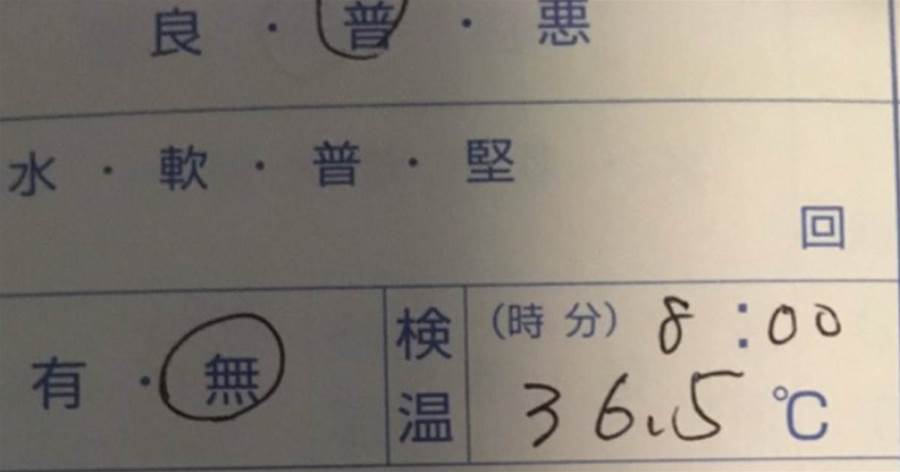 良・普・悪
水・軟・普・堅
回
有・無
検温
(時 分) 8:00
36.5℃